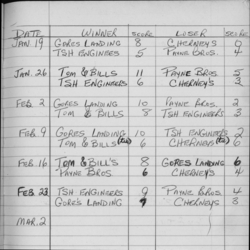 DATE WINNER SCORE LOSER SCORE
JAN 19 GORES LANDING 8 CHERNEYS 0
TSH ENGINEERS 5 PAYNE BROS. 4
JAN. 26 TOM & BILLS 11 PAYNE BROS. 5
TSH ENGINEERS 6 CHERNEY'S 3
FEB 2 GORES LANDING 10 PAYNE BROS. 2
TOM & BILLS 8 TSH ENGINEERS 3
FEB 9 GORES LANDING 10 TSH ENGINEERS 2
TOM & BILLS 6 CHERNEYS 6
FEB 16 TOM & BILL'S 8 GORES LANDING 6
PAYNE BROS 6 CHERNEYS 4
FEB 23 TSH ENGINEERS 9 PAYNE BROS. 4
GORE'S LANDING 9 CHERNEYS 8
MAR. 2